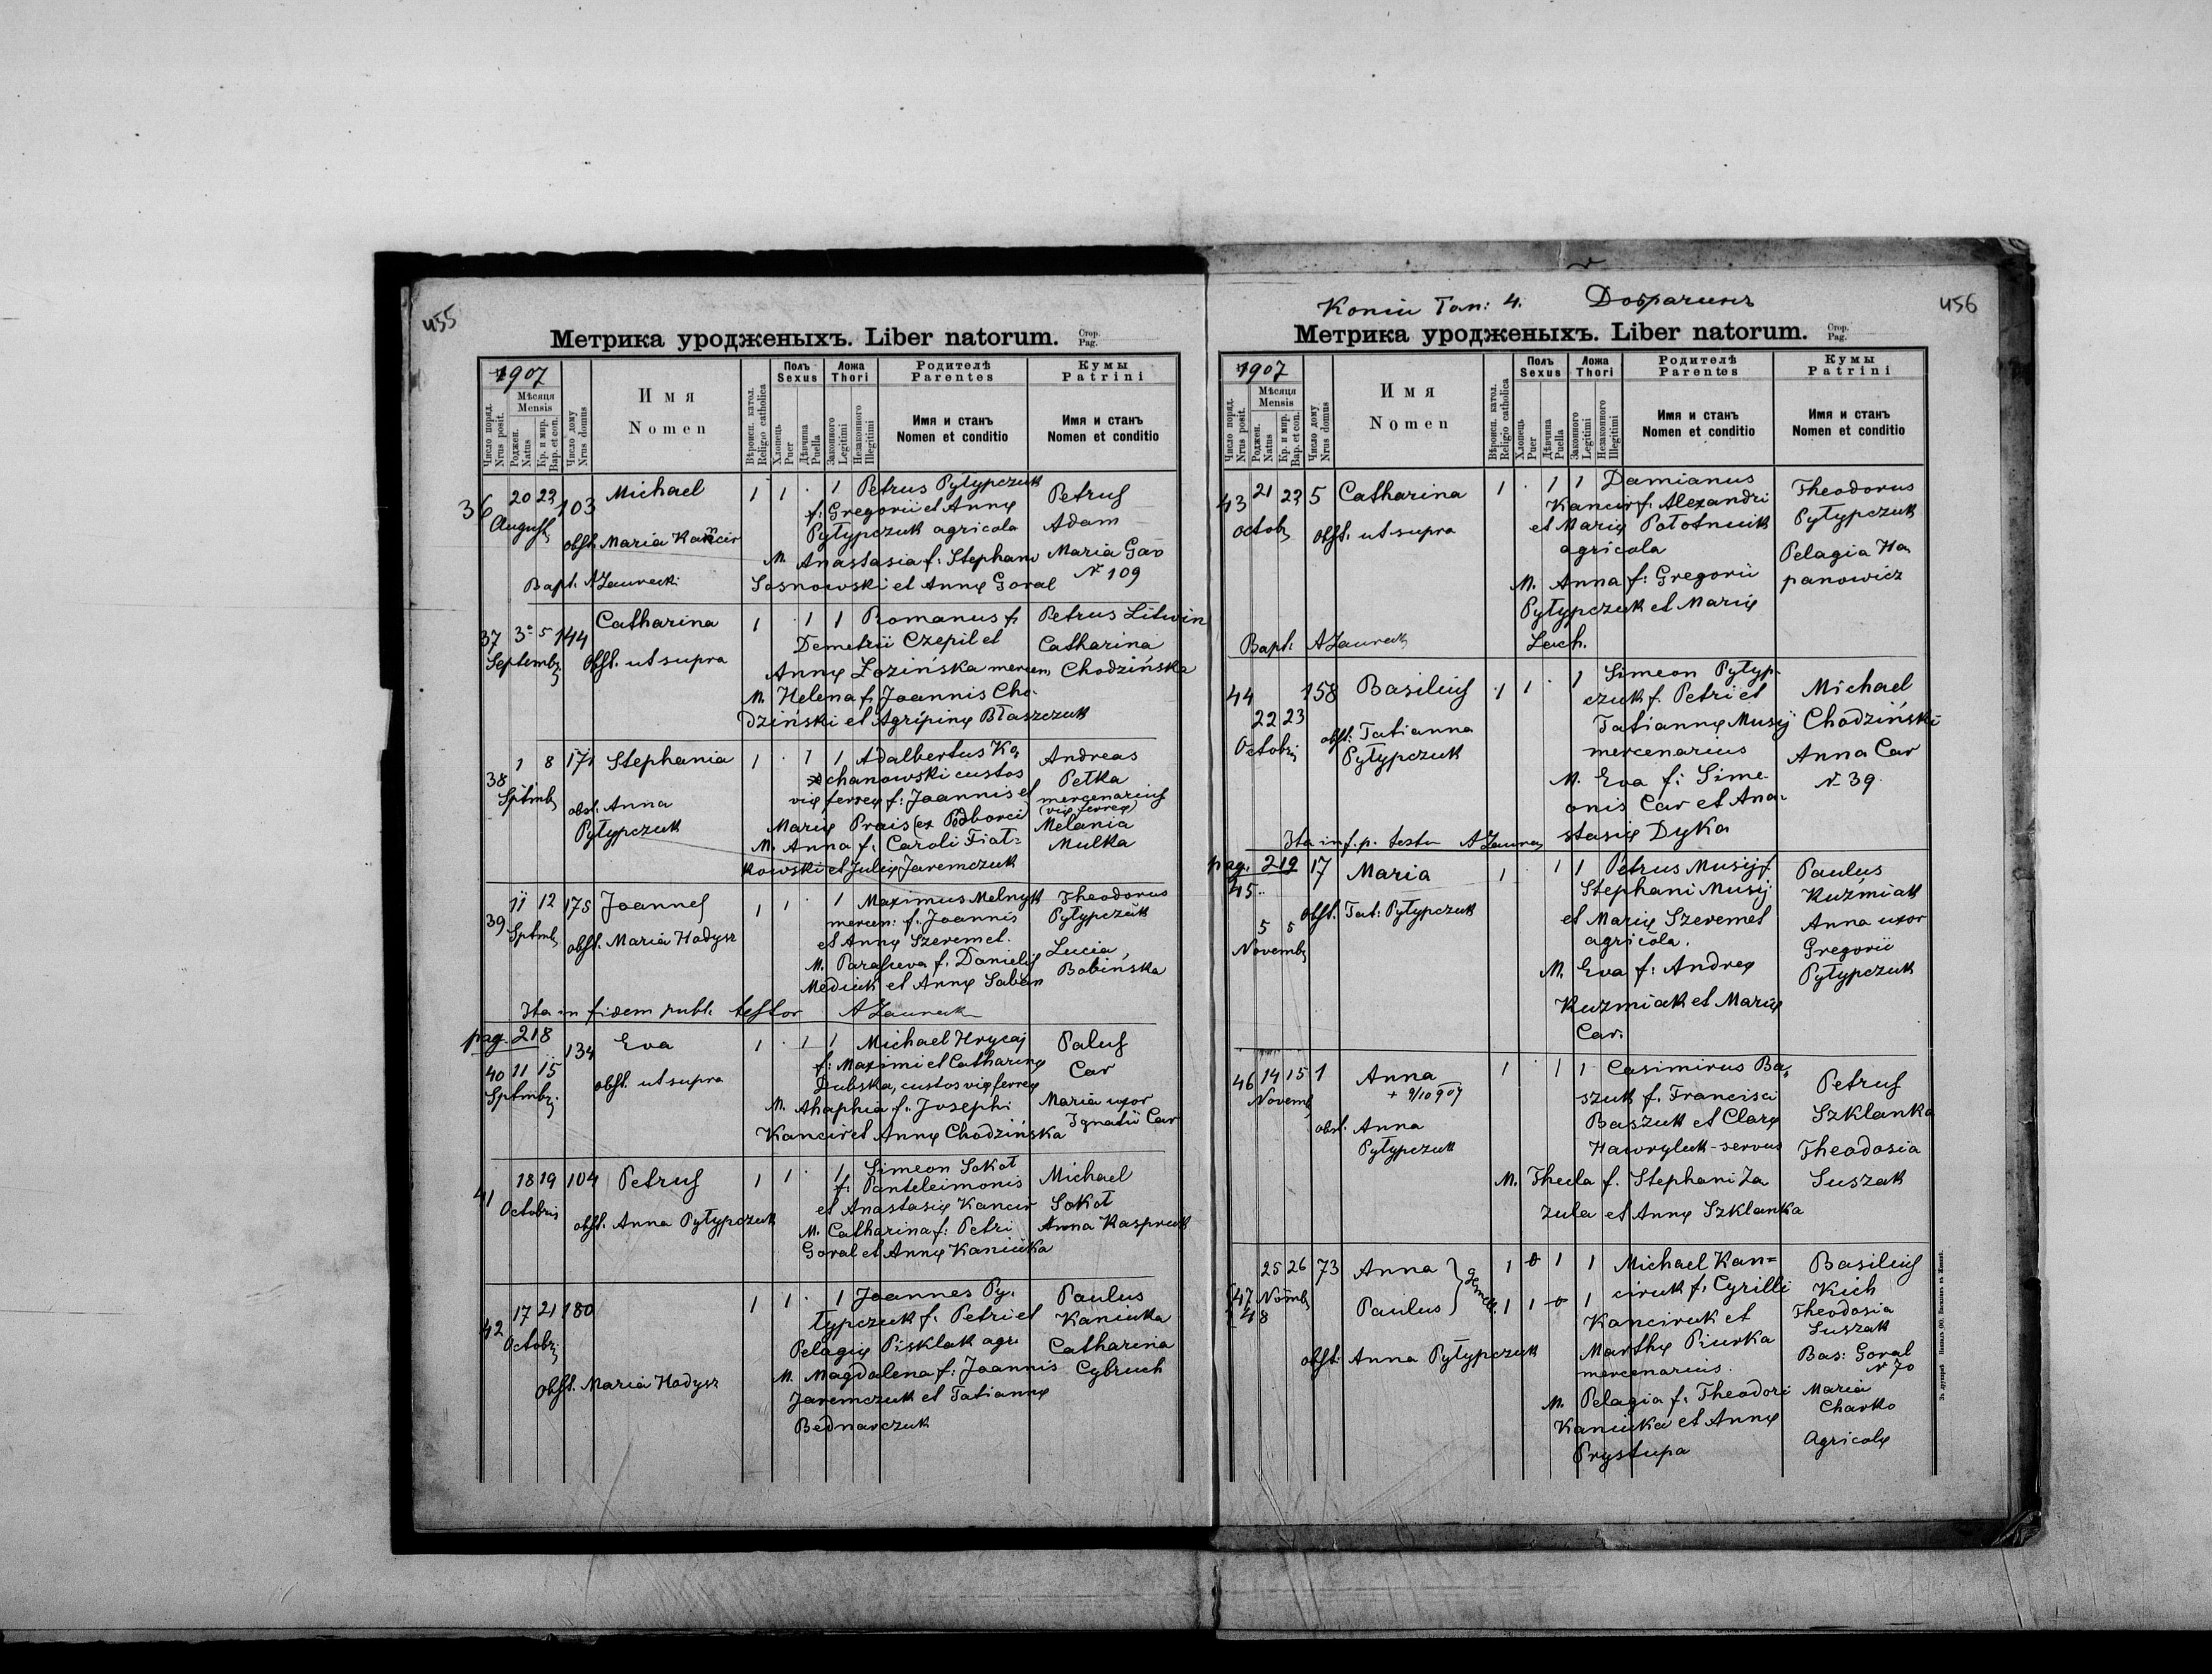 455
Метрика уродженыхъ. Liber natorum. Стор. Pag.
1907
Число поряд. Nrus posit.
Мѣсяця Mensis
Роджен. Natus
Кр. и мир. Bap. et con.
Число дому Nrus domus
Имя
Nomen
Вѣроисп. катол. Religio catholica
Полъ Sexus
Хлопець Puer
Дѣвчина Puella
Ложа Thori
Законного Legitimi
Незаконного Illegitimi
Родителѣ Parentes
Имя и станъ
Nomen et conditio
Кумы Patrini
Имя и станъ
Nomen et conditio
36 20 23 August 103 Michael
obst. Maria Kancir
Bapt. A Zaurecki
1 1 · 1 Petrus Pyłypczuk
f: Gregorii et Annę
Pyłypczuk agricola
M. Anastasia f: Stephani
Sosnowski et Annę Goral
Petrus
Adam
Maria Gao
N 109
37 3 5 Septembr 144 Catharina
Obst. ut supra
1 · 1 1 Romanus f.
Demetrii Czepil et
Annę Łozińska mercen
M. Helena f. Joannis Cho-
dziński et Agripinę Błaszczuk
Petrus Litwin
Catharina
Chodzińska
38 1 8 Sptmb 171 Stephania
obst. Anna
Pyłypczuk
1 · 1 1 Adalbertus Ko
chanowski custos
vię ferreę f: Joannis et
Marię Prais (ex Podborci
M. Anna f. Caroli Fiat=
kowski et Julię Jaremczuk
Andreas
Petka
mercenarius
(vię ferreę)
Melania
Mulka
39 11 12 Sptmb 175 Joannes
obst. Maria Hadysz
1 1 · 1 Maximus Melnyk
mercen: f: Joannis
et Annę Szeremet.
M. Parasceva f. Danielis
Mediuk et Annę Saban
Theodorus
Pyłypczuk
Lucia
Babińska
Ita in fidem publ. testor A Zaureck
pag. 218
40 11 15 Sptmbr 134 Eva
obst. ut supra
1 · 1 1 Michael Hrycaj
f: Maximi et Catharinę
Dubska, custos vię ferreę
M. Ahaphia f: Josephi
Kancir et Annę Chodzińska
Palus
Car
Maria uxor
Ignatii Car
41 18 19 Octobris 104 Petrus
obst. Anna Pyłypczuk
1 1 · 1 Simeon Sokoł
f. Panteleimonis
et Anastasię Kancir
M. Catharina f: Petri
Goral et Annę Kaniuka
Michael
Sokoł
Anna Kaspruk
42 17 21 Octobr 180
obst. Maria Hadysz
1 1 · 1 Joannes Py-
łypczuk f. Petri et
Pelagię Pisklak agri
M. Magdalena f: Joannis
Jaremczuk et Tatiannę
Bednarczuk
Paulus
Kaniuka
Catharina
Cybruch
Добрачинъ
456
Метрика уродженыхъ. Liber natorum. Стор. Pag.
1907
Число поряд. Nrus posit.
Мѣсяця Mensis
Роджен. Natus
Кр. и мир. Bap. et con.
Число дому Nrus domus
Имя
Nomen
Вѣроисп. катол. Religio catholica
Полъ Sexus
Хлопець Puer
Дѣвчина Puella
Ложа Thori
Законного Legitimi
Незаконного Illegitimi
Родителѣ Parentes
Имя и станъ
Nomen et conditio
Кумы Patrini
Имя и станъ
Nomen et conditio
43 21 23 octobr 5 Catharina
Obst. ut supra
Bapt. A Zaureck
1 · 1 1 Damianus
Kancir f. Alexandri
et Marię Połotniuk
agricola
M. Anna f: Gregorii
Pyłypczuk et Marię
Lech.
Theodorus
Pyłypczuk
Pelagia Ha
panowicz
44 22 23 Octobr 158 Basilius
obst. Tatianna
Pyłypczuk
1 1 · 1 Simeon Pyłyp-
czuk f. Petri et
Tatiannę Musij
mercenarius
M. Eva f: Sime-
onis Car et Ana-
stasię Dyka
Michael
Chodziński
Anna Car
N 39.
Ita in f. p. testor A Zaurec
pag. 219
45 5 5 Novembr 17 Maria
obst. Tat: Pyłypczuk
1 · 1 1 Petrus Musij f.
Stephani Musij
et Marię Szeremet
agricola.
M. Eva f: Andreę
Kuzmiak et Marię
Car.
Paulus
Kuźmiak
Anna uxor
Gregorii
Pyłypczuk
46 14 15 Novemb 1 Anna
+ 9/10 907
obst. Anna
Pyłypczuk
1 · 1 1 Casimirus Ba-
szuk f. Francisci
Baszuk et Clarę
Hawryluk-servus
M. Thecla f. Stephani Za
zula et Annę Szklanka
Petrus
Szklanka
Theodosia
Suszak
47 48 25 26 Novmb 73 Anna } gemelli
Paulus
obst: Anna Pyłypczuk
1 0 1 1
1 1 0 1
Michael Kan=
ciruk f. Cyrilli
Kanciruk et
Marthę Piurka
mercenarius.
M. Pelagia f: Theodori
Kaniuka et Annę
Prystupa
Basilius
Kich
Theodosia
Suszak
Bas: Goral
N 70
Maria
Charko
Agricolę